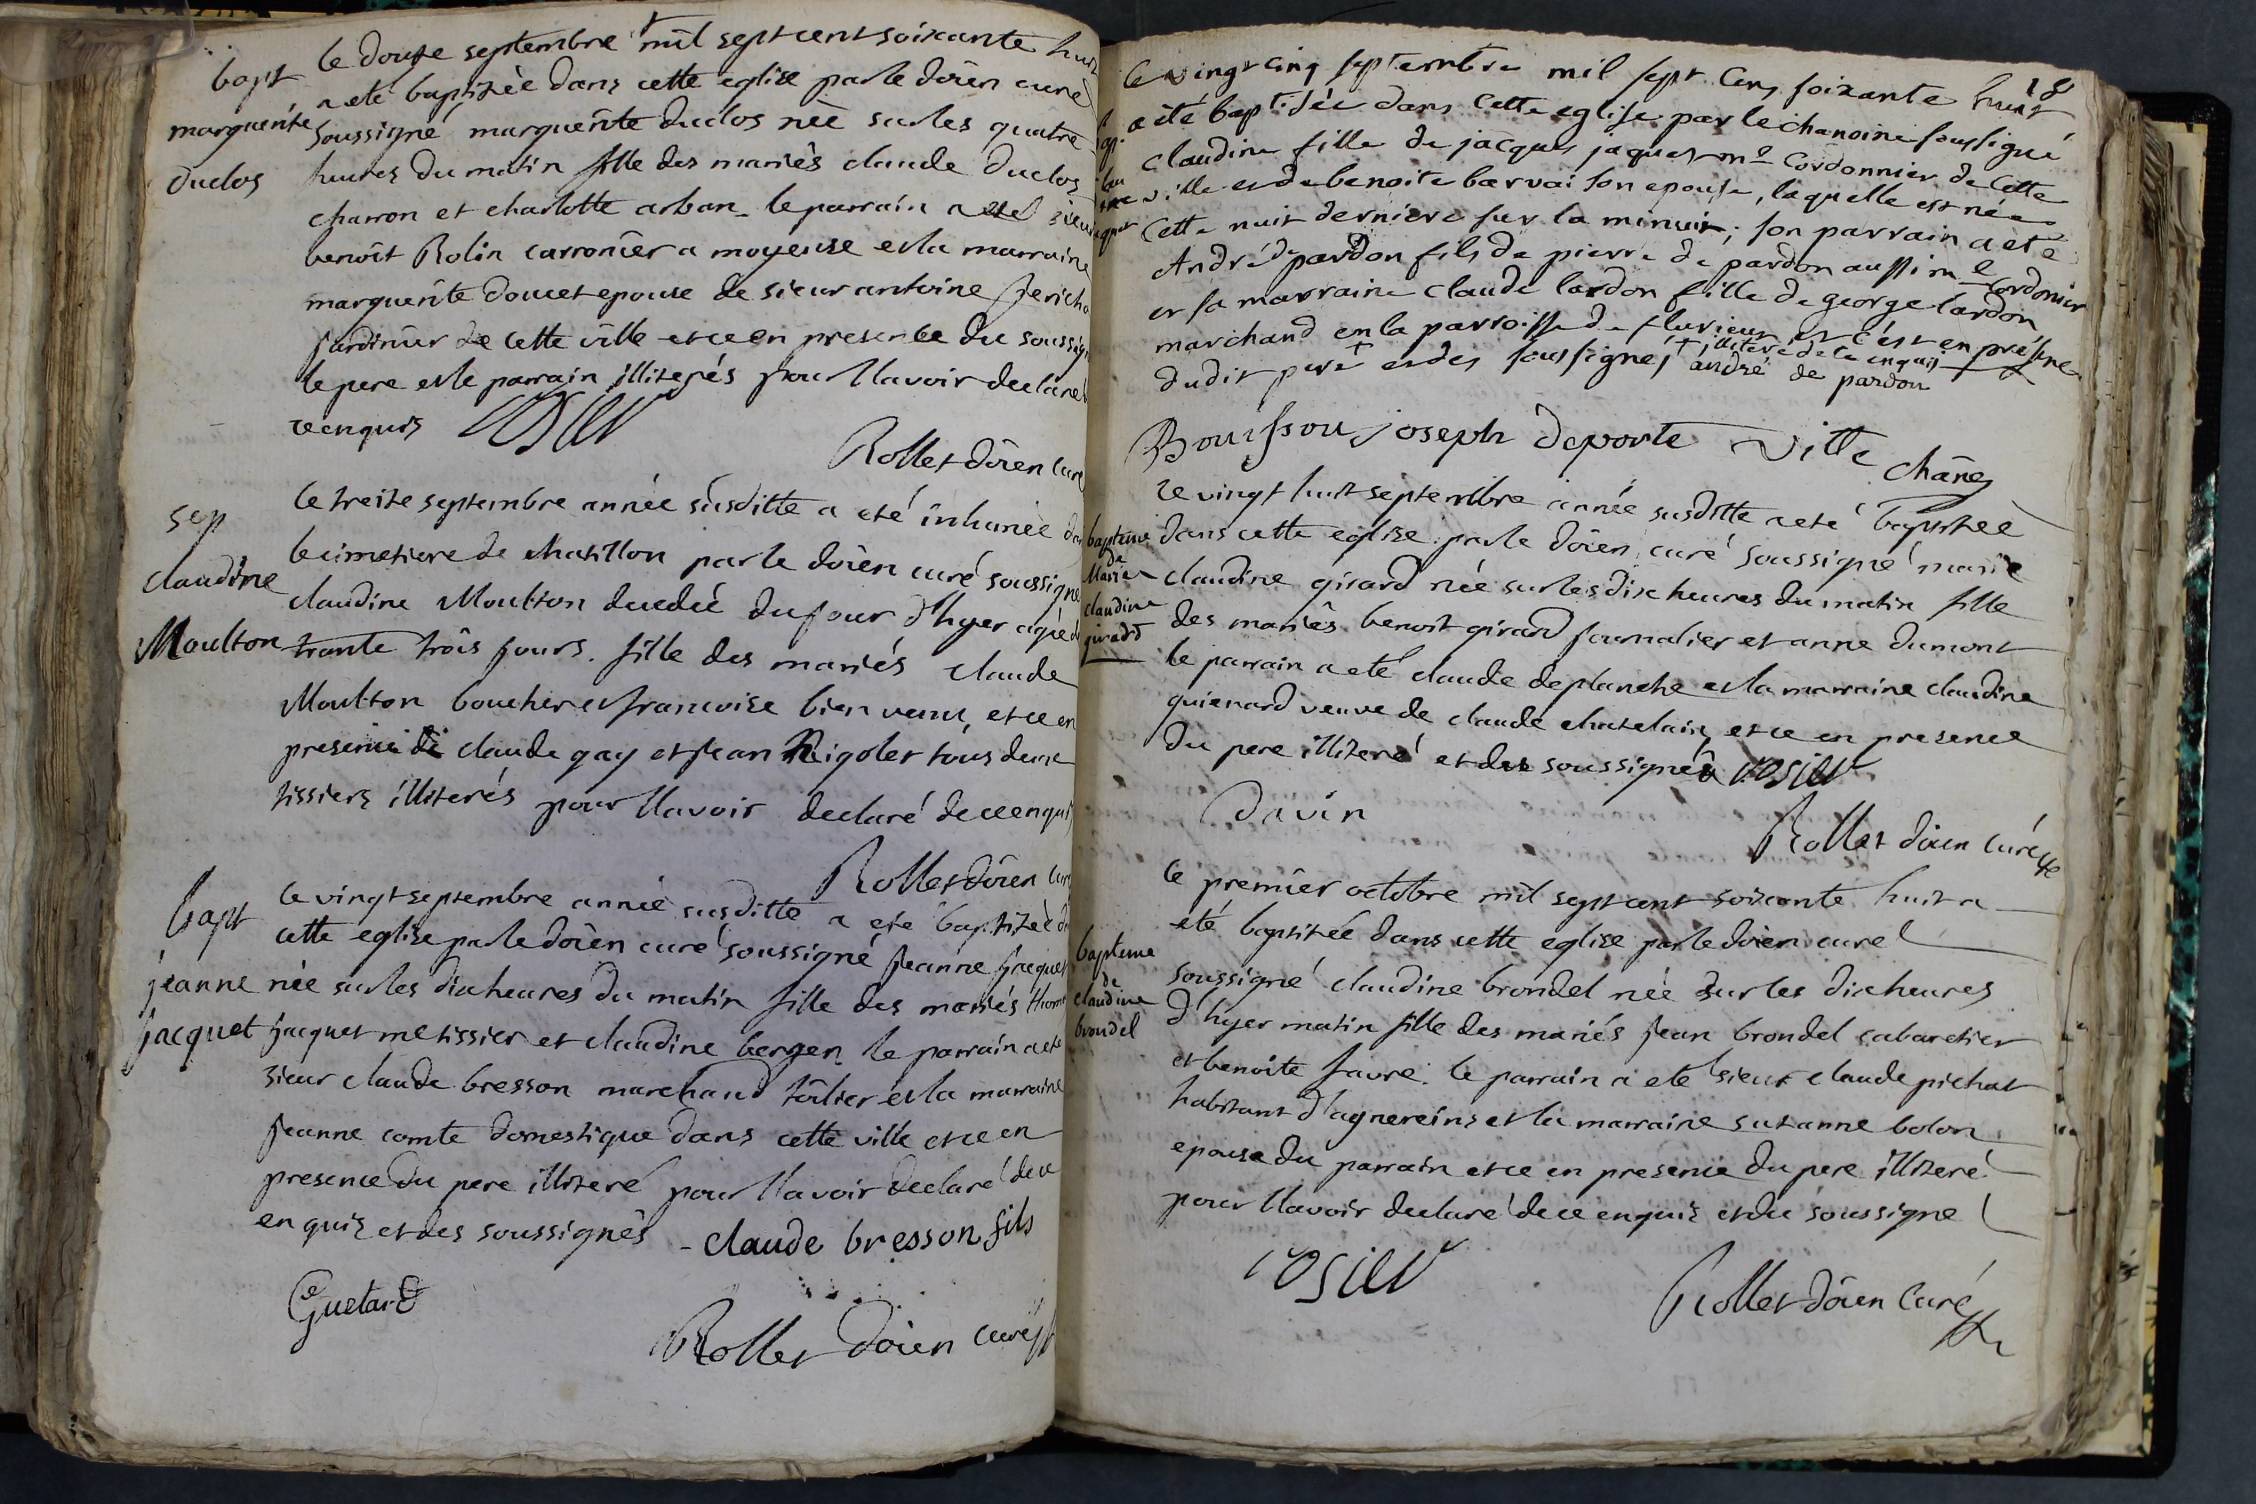 bapt
marguerite
duclos
le douze septembre mil sept cent soixante huit
a eté baptizée dans cette eglise par le doïen curé
soussigné marguerite duclos née sur les quatre
heures du matin fille des mariés claude duclos
charron et charlotte arban le parrain a eté sieur
benoît Rolin carronier a moyeuse et la marraine
marguerite doucet epouse de sieur antoine jericho
jardinier de cette ville et ce en presence du soussigné
le pere et le parrain illiterés pour l'lavoir declaré
ce enquis
Rollet doïen curé
sep
claudine
Moulton
le treize septembre année susditte a eté inhumée dans
le cimetiere de chatillon par le doïen curé soussigné
claudine Moulton decedée du jour d'hyer agée de
trante trois jours fille des mariés claude
Moulton boucher et francoise bien venu, et ce en
presence de claude gay et jean Rigolet tous deux
tissiers illiterés pour l'lavoir declaré de ce enquis
Rollet doïen curé
bapt
jeanne
jacquet
le vingt septembre année susditte a eté baptizée dans
cette eglise par le doïen curé soussigné jeanne jacquet
née sur les dix heures du matin fille des mariés thom
jacquet me tissier et claudine bergen le parrain a eté
sieur claude bresson marchand toilier et la marraine
jeanne comte domestique dans cette ville et ce en
presence du pere illiteré pour l'lavoir declaré de ce
enquis et des soussignés - claude bresson fils
Guetard
Rollet doïen curé
18
le vingt cinq septembre mil sept cens soixante huit
a été baptisée dans cette eglise par le chanoine soussigné
claudine fille de jacques jaquet me cordonnier de cette
ville et de benoite barvai son epouse, laquelle est née
cette nuit derniere sur la minuit; son parrain a eté
André depardon fils de pierre de pardon aussi me cordonier
et sa marraine claude lardon fille de george lardon
marchand en la parroisse de fluvieux et c'est en présence
dudit pere + et des soussignés + illiteré de ce enquis
andré de pardon
Bouisson joseph deporte Ville chãne
baptême
de
Marie
claudine
girard
le vingt huit septembre année susditte a eté baptizée
dans cette eglise par le doïen curé soussigné marie
claudine girard née sur les dix heures du matin fille
des mariés benoit girard journalier et anne dumont
le parrain a eté claude deplanche et la marraine claudine
guienard veuve de claude chatelain, et ce en presence
du pere illiteré et des soussignés
Davin
Rollet doïen curé
bapteme
de
claudine
brondel
le premier octobre mil sept cent soixante huit a
eté baptizée dans cette eglise par le doïen curé
soussigné claudine brondel née sur les dix heures
d'hyer matin fille des mariés jean brondel cabaretier
et benoite favre. le parrain a eté sieur claude pichat
habitant d'agnereins et la marraine suzanne bolon
epouse du parrain et ce en presence du pere illiteré
pour l'lavoir declaré de ce enquis et du soussigné
Rollet doïen curé